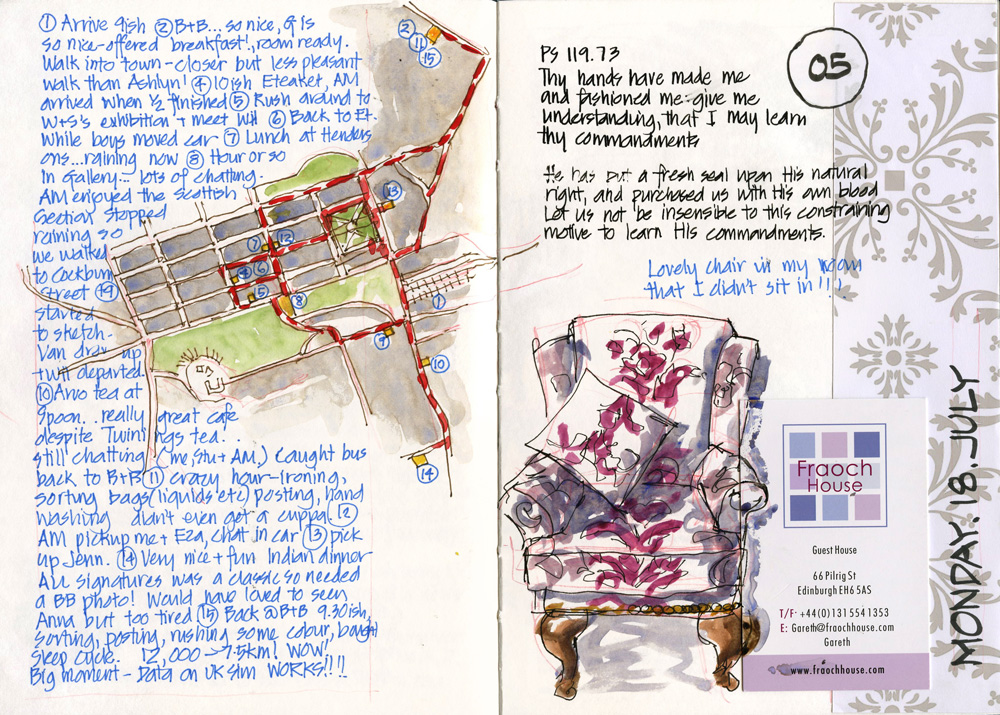 ① Arrive 9ish ② B+B... so nice, G is
so nice-offered breakfast!, room ready.
Walk into town - closer but less pleasant
walk than Ashlyn! ④ 10ish Eteaket, AM
arrived when ½ finished ⑤ Rush around to
W+S's exhibition + meet WH ⑥ Back to Et.
while boys moved car ⑦ Lunch at Henders
ons...raining now ⑧ Hour or so
in Gallery... lots of chatting.
AM enjoyed the Scottish
Section stopped
raining so
we walked
to Cockburn
Street
started
to sketch-
Van drove up
+ WH departed.
⑩ Arvo tea at
Spoon... really great cafe
despite Twinings tea! . .
still chatting (me, Stu + AM,) Caught bus
back to B+B ⑪ crazy hour-ironing,
sorting bags (liquids etc) posting, hand
washing didn't even get a cuppa. ⑫
AM pick up me + Eza, chat in car ⑬ pick
up Jenn. ⑭ Very nice + fun Indian dinner
All signatures was a classic so needed
a BB photo! Would have loved to seen
Anna but too tired ⑮ Back @ B+B 9.30ish,
sorting, posting, rushing some colour, bought
Sleep Cycle. 12,000 → 7.5km! WOW!
Big moment - Data on UK sim WORKS!!!!
2
11
15
13
7
12
4
6
5
8
1
9
10
14
Ps 119.73
Thy hands have made me
and fashioned me: give me
understanding, that I may learn
thy commandments
05
He has put a fresh seal upon His natural
right, and purchased us with His own blood
Let us not be insensible to this constraining
motive to learn His commandments.
Lovely chair in my room
that I didn't sit in!!!
Fraoch
House
Guest House
66 Pilrig St
Edinburgh EH6 5AS
T/F: +44(0)131 554 1353
E: Gareth@fraochhouse.com
Gareth
www.fraochhouse.com
MONDAY.18.JULY